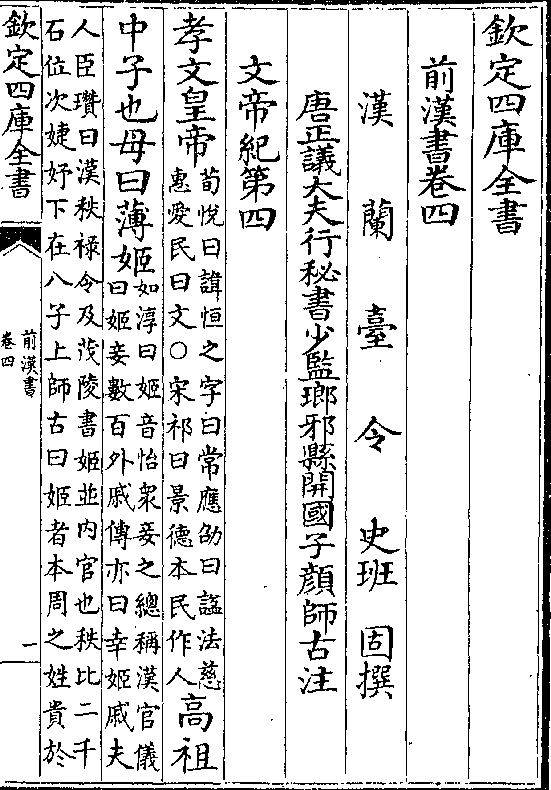 欽定四庫全書
前漢書卷四
漢蘭臺令史班固撰
唐正議大夫行秘書少監瑯邪縣開國子顏師古注
文帝紀第四
孝文皇帝
荀悅曰諱恒之字曰常應劭曰諡法慈
惠愛民曰文○宋祁曰景德本民作人
高祖
中子也母曰薄姬
如淳曰姬音怡衆妾之總稱漢官儀
曰姬妾數百外戚傳亦曰幸姬戚夫
人臣瓚曰漢秩祿令及茂陵書姬並内官也秩比二千
石位次婕妤下在八子上師古曰姬者本周之姓貴於
欽定四庫全書
前漢書
卷四
一